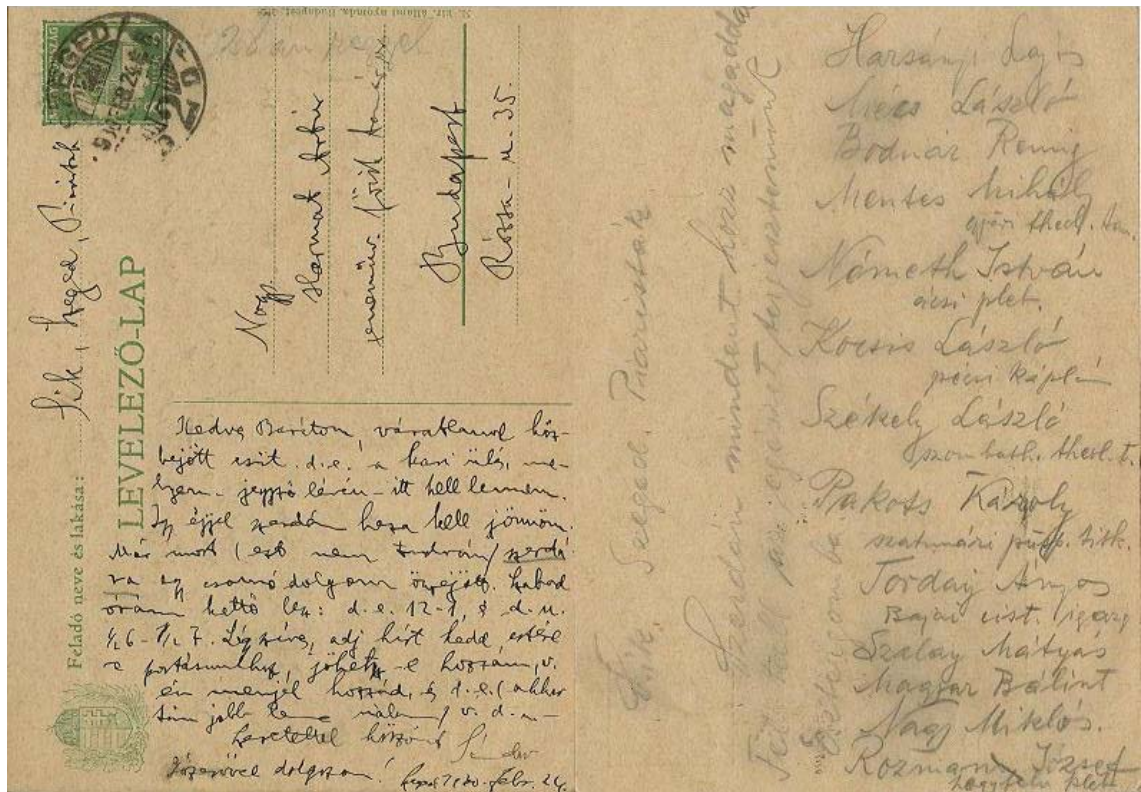 28 án reggel
M. kir. állami nyomda. Budapest,
SZEGED
Feladó neve és lakása:
Sík, Szeged, Piaristák
LEVELEZŐ-LAP
Nagys.
Harmat Artúr
Budapest
Rózsa-u. 35.
Kedves Barátom, váratlanul köz-
bejött a kari ülés,
jegyző lévén - itt kell lennem.
Így éjjel szerdán haza kell jönnöm.
Már most (ezt nem tudván) szerdá-
ra egy csomó dolgom összejött. Szabad
órám kettő lesz: d.e. 12-1, s d.u.
½6-½7. Légy szíves, adj hírt kedd estére
a portásunkhoz, jöhetsz-e hozzám, v.
én menjek hozzád, d.e. (akkor
jobb lenne nálam) v. d.u.
Szeretettel köszönt Sándor
dolgozom! 1930. febr. 24.
Sík. Szeged. Piaristák
Szerdán mindent hozz magaddal
Fel kell az egészet terjesztenünk
Harsányi Lajos
Mécs László
Bodnár Remig
Mentes Mihály
győri theol. tan.
Németh István
ácsi pleb.
Kocsis László
pécsi káplán
Székely László
szombath. theol. t.
Pakots Károly
szatmári püsp. titk.
Torday Ányos
Bajai cist. igazg
Szalay Mátyás
Magyar Bálint
Nagy Miklós.
Rozmann József
pleb.